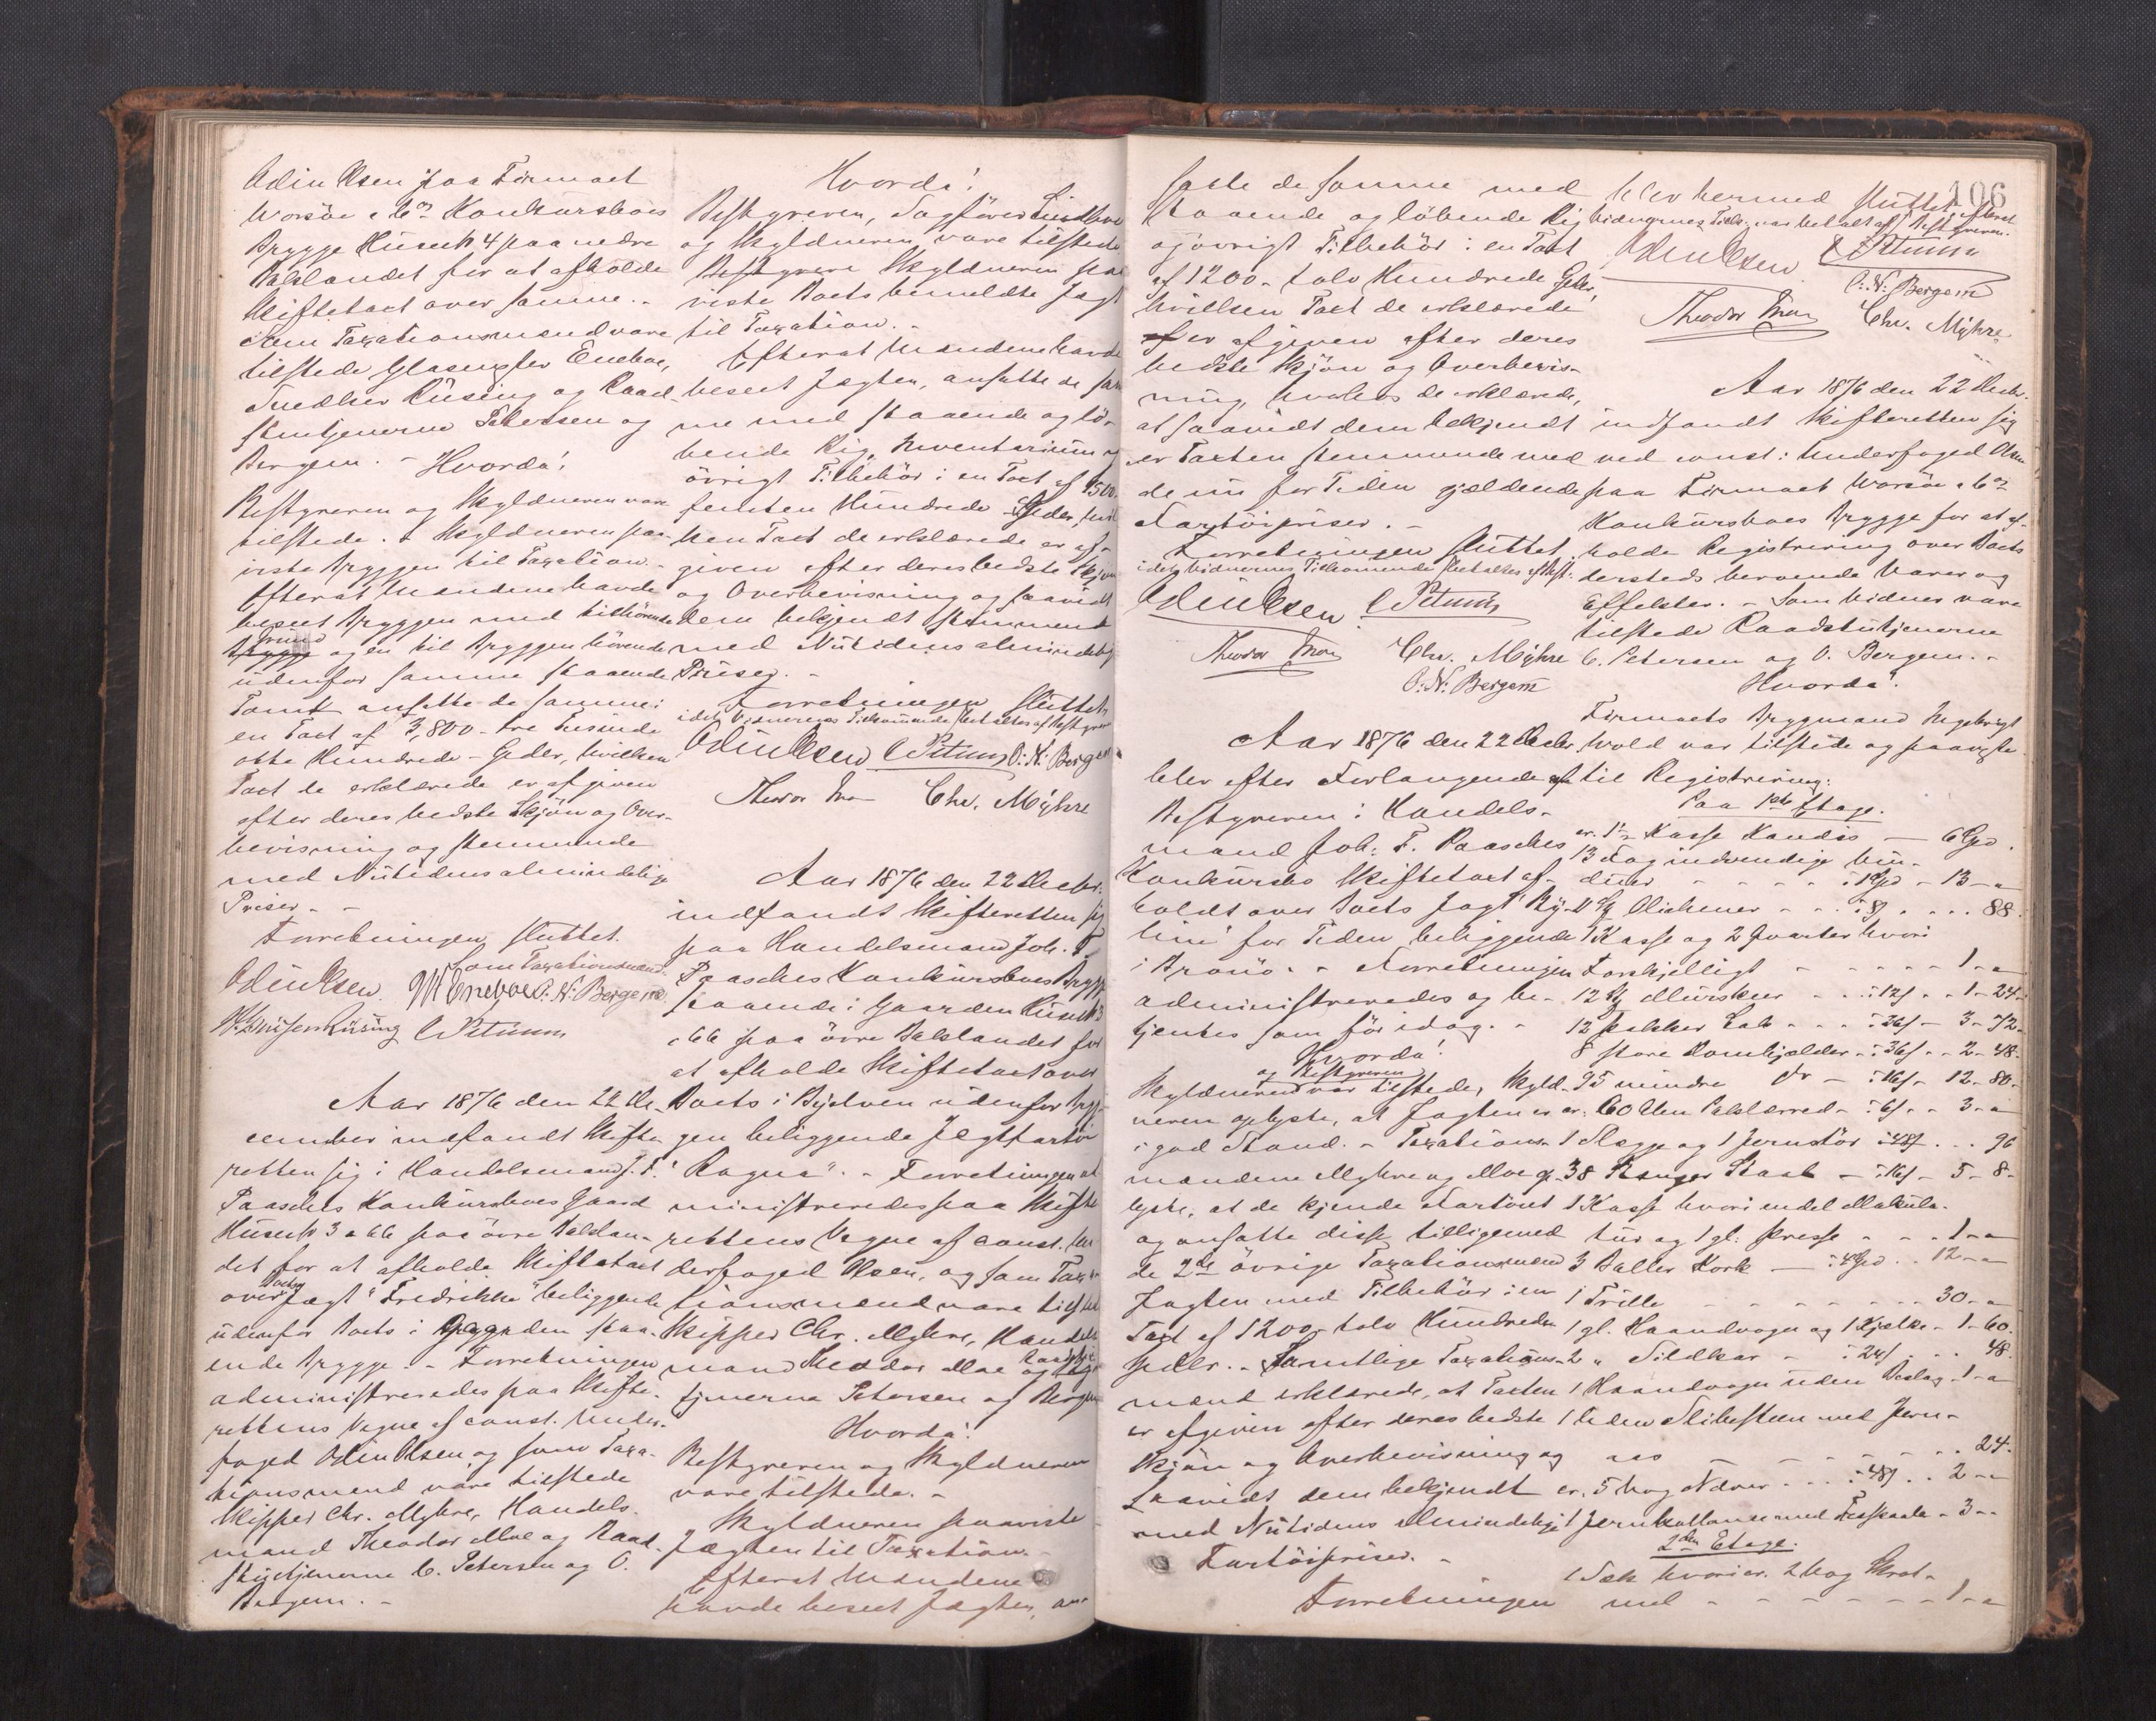 Odin Olsen paa Firmaet
Worsöe & Co Konkursboes
Brygge Husnr 4 paa nedre
Baklandet for at afholde
Skiftetaxt over samme. -
Som Taxationsmænd vare
tilstede Glasmester Eneboe,
Snedker Rüsing og Raad-
stutjenerne Petersen og
Bergem. - Hvorda!
Bestyreren og Skyldneren vare
tilstede. Skyldneren paa-
viste Bryggen til Taxation. -
Efterat Mændene havde
beseet Bryggen med tilhörende
Grund og en til Bryggen hörende
udenfor samme staaende
Tomt ansatte de samme i
en Taxt af 3,800 - tre Tusinde
otte Hundrede - Spdlr, hvilken
Taxt de erklærede er afgiven
efter deres bedste Skjön og Over-
bevisning og stemmende
med Nutidens almindelige
Priser. -
Forretningen sluttet.
Som Taxationsmænd:
Odin Olsen. M Eneboe O. N. Bergem
Rüsing C Petersen
Aar 1876 den 22 De-
cember indfandt Skifte-
retten sig i Handelsmand J. F.
Paasches Konkursboes Gaard
Husnr 3 & 66 paa övre Baklan-
det for at afholde Skiftetaxt
over Boets Jægt "Fredrikke" beliggende
udenfor Boets i Gaarden staa-
ende Brygge. - Forretningen
administreredes paa Skifte-
rettens Vegne af const. Under-
foged Odin Olsen, og som Taxa-
tionsmænd vare tilstede
Skipper Chr. Myhre, Handels-
mand Theodor Moe og Raad-
stutjenerne C. Petersen og O.
Bergem. -
Hvorda!
Bestyreren, Sagförer
og Skyldneren vare tilstede
Bestyrere Skyldneren paa-
viste Boets bemeldte Jægt
til Taxation. -
Efterat Mændene havde
beseet Jægten, ansatte de sam-
me med staaende og lö-
bende Rig, Inventarium og
övrigt Tilbehör i en Taxt af 1500
femten Hundrede Spdlr, hvil-
ken Taxt de erklærede er af-
given efter deres bedste Skjön
og Overbevisning og saavidt
dem bekjendt stemmende
med Nutidens almindelig
Priser. -
Forretningen sluttet,
idet Vidnernes Tilkommende betaltes af Bestyreren
Odin Olsen C Petersen O. N. Bergem
Theodor Moe Chr. Myhre
Aar 1876 den 22 Decbr.
indfandt Skifteretten sig
paa Handelsmand Joh. F.
Paasches Konkursboes Brygge
staaende i Gaarden Husnr 3
& 66 paa övre Baklandet for
at afholde Skiftetaxt over
Boets i Byelven udenfor Bryg-
gen beliggende Jægtfartöi
"Ragna". - Forretningen ad-
ministreredes paa Skifte-
rettens Vegne af const. Un-
derfoged Olsen, og som Taxa-
tionsmænd vare tilstede
Skipper Chr. Myhre, Handels-
mand Theodor Moe og Raadstu-
tjenerne Petersen og Bergem
Hvorda!
Bestyreren og Skyldneren
vare tilstede. -
Skyldneren paaviste
Jægten til Taxation. -
Efterat Mændene
havde beseet Jægten, an-
106
satte de samme med
staaende og löbende Rig
og övrigt Tilbehör i en Taxt
af 1200 - tolv Hundrede Spdlr,
hvilken Taxt de erklærede
er afgiven efter deres
bedste Skjön og Overbevis-
ning, hvorhos de erklærede,
at saavidt dem bekjendt
er Taxten stemmende med
de nu for Tiden gjældende
Fartöipriser. -
Forretningen sluttet,
idet Vidnernes Tilkommende betaltes af Best.
Odin Olsen. C Petersen
Theodor Moe Chr. Myhre
O. N. Bergem
Aar 1876 den 22 Decbr
blev efter Forlangende af
Bestyreren i Handels-
mand Joh. F. Paasches
Konkursbo Skiftetaxt af-
holdt over Boets Jagt "
line" for Tiden beliggende
i Bronö. - Forretningen
administreredes og be-
tjentes som för idag. -
Hvorda!
og Bestyreren
Skyldneren var tilstede, Skyld-
neren oplyste, at Jagten er
i god Stand. - Taxations-
mændene Myhre og Moe op-
lyste, at de kjende Fartöiet
og ansatte disse tilligemed
de 2de övrige Taxationsmænd
Jagten med Tilbehör i en
Taxt af 1200 tolv Hundrede
Spdlr. - Samtlige Taxations-
mænd erklærede, at Taxten
er afgiven efter deres bedste
Skjön og Overbevisning og
saavidt dem bekjendt er
med Nutidens almindelige
Fartöipriser. -
Forretningen
blev hermed sluttet, efterat
Vidnernes Tilk. var betalt af Bestyreren.
Odin Olsen C Petersen
O. N. Bergem
Theodor Moe Chr. Myhre
Aar 1876 den 22 Decbr.
indfandt Skifteretten sig
ved const. Underfoged Olsen
paa Firmaet Worsöe & Co
Konkursboes Brygge for at af-
holde Registrering over Boets
dersteds beroende Varer og
Effekter. - Som Vidner vare
tilstede Raadstutjenerne
C. Petersen og O. Bergem. -
Hvorda!
Firmaets Brygmand Ingebrigt
Wold var tilstede og paaviste
til Registrering:
Paa 1ste Etage.
1/2 Kasse Kandis - 6 Spd.
13 Fag indvendige Vin-
duer - - - - 1 Spd - 13 - "
- - 8 s - - - 88.
1 Kasse og 2 Kvarter hvori
Forskjelligt - - - - - 1 - "
12 Murskeer - - 12 s - - 1 - 24 -
12 pakker - - - 36 s - 3 - 72 -
8 store Komkjælder - 36 s - - 2 - 48 -
95 mindre do - 16 s - 12 - 80 -
60 Alen Paklærred - 6 s - - 3 - "
1 Slægge og 1 Jernstör 48 s . . . 96
38 Stænger Staal - 16 s - 5 - 8 -
1 Kasse hvori endel Makula-
tur og 1 gl. Presse - - - 1 - "
3 Baller Kork - 4 Spd . . 12 - "
1 Trille - - - - - - - 30 - "
1 gl. Haandvogn og 1 Kjelke - 1 - 60.
2 " Sildkar - 24 s . . 48.
1 Haandvogn uden Beslag - 1 - "
1 liden Slibesteen med Jern-
aas - - - - - 24.
5 Vog Næver - - 48 s . . 2 - "
1 med - 3 - -
2den Etage.
1 Sæk hvori 2 Vog Skrot-
mel - - - - - - 1 - "